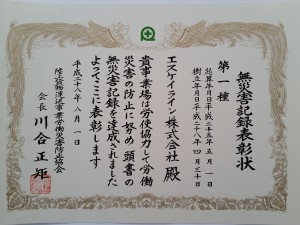 無災害記録表彰状
第一種
起算年月日平成二十五年五月一日
樹立年月日平成二十八年四月三十日
エスケイライン株式会社 殿
貴事業場は労使協力して労働
災害の防止に努め 頭書の
無災害記録を達成されました
よってここに表彰します
平成二十八年八月一日
陸上貨物運送事業労働災害防止協会
会長 川合正矩